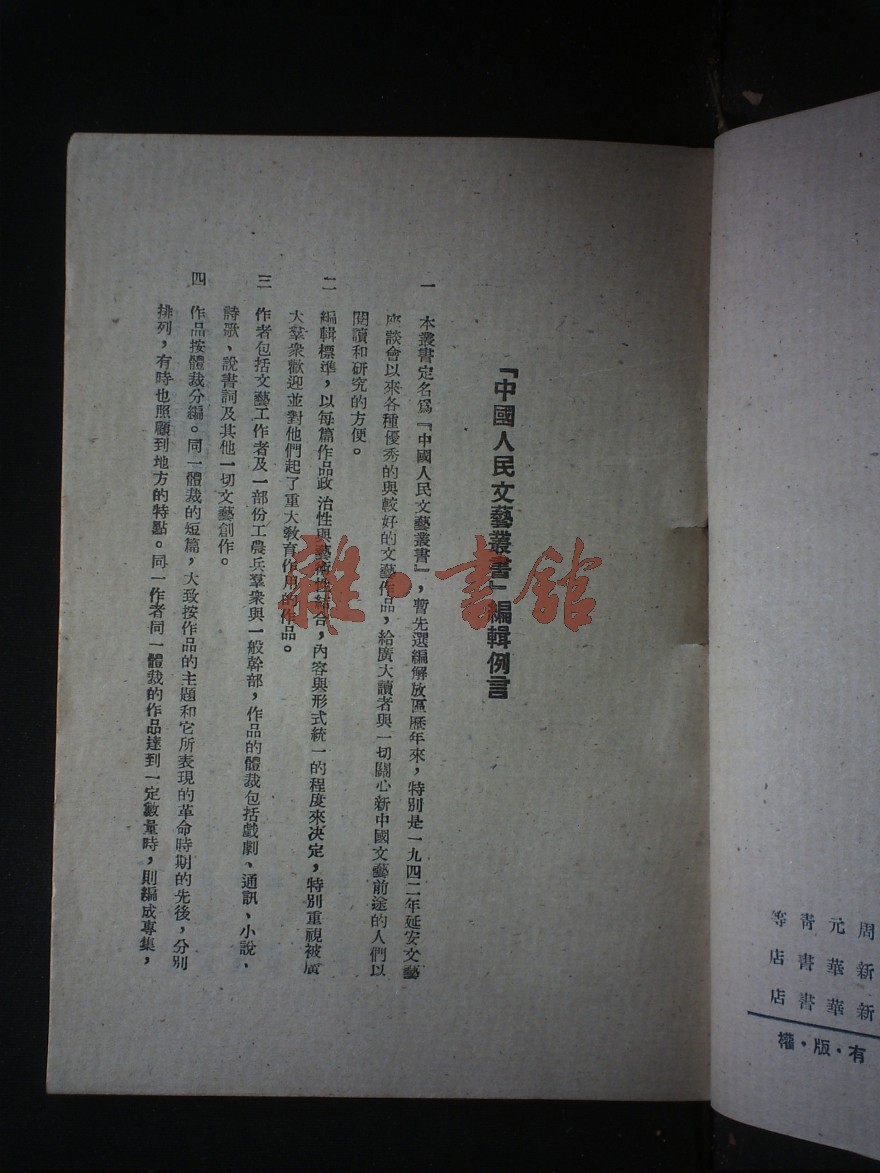 「中國人民文藝叢書」編輯例言
一　本叢書定名爲『中國人民文藝叢書』，暫先選編解放區歷年來，特別是一九四二年延安文藝
座談會以來各種優秀的與較好的文藝作品，給廣大讀者與一切關心新中國文藝前途的人們以
閱讀和研究的方便。
二　編輯標準，以每篇作品政治性與藝術性結合，內容與形式統一的程度來決定，特別重視被廣
大羣衆歡迎並對他們起了重大教育作用的作品。
三　作者包括文藝工作者及一部份工農兵羣衆與一般幹部，作品的體裁包括戲劇、通訊、小說、
詩歌、說書詞及其他一切文藝創作。
四　作品按體裁分編。同一體裁的短篇，大致按作品的主題和它所表現的革命時期的先後，分別
排列，有時也照顧到地方的特點。同一作者同一體裁的作品達到一定數量時，則編成專集，
雜·書館
周元青等
新華書店
新華書店
有·版·權